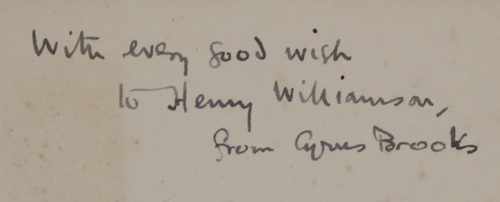 With every good wish
to Henry Williamson,
from Cyrus Brooks